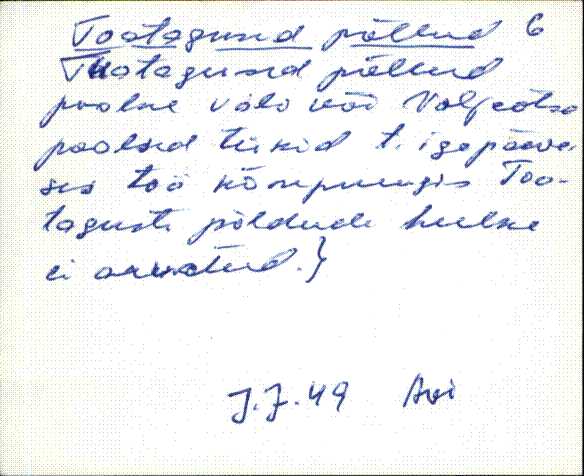 Tootagused põllud 6
Tuatagused põllud
poolne välu või Valjaotsa
poolsed tükid t. igapäeva-
ses töö kõnepruugis Too-
taguste põldude hulka
ei arvatud.}
J.J.49 Avi